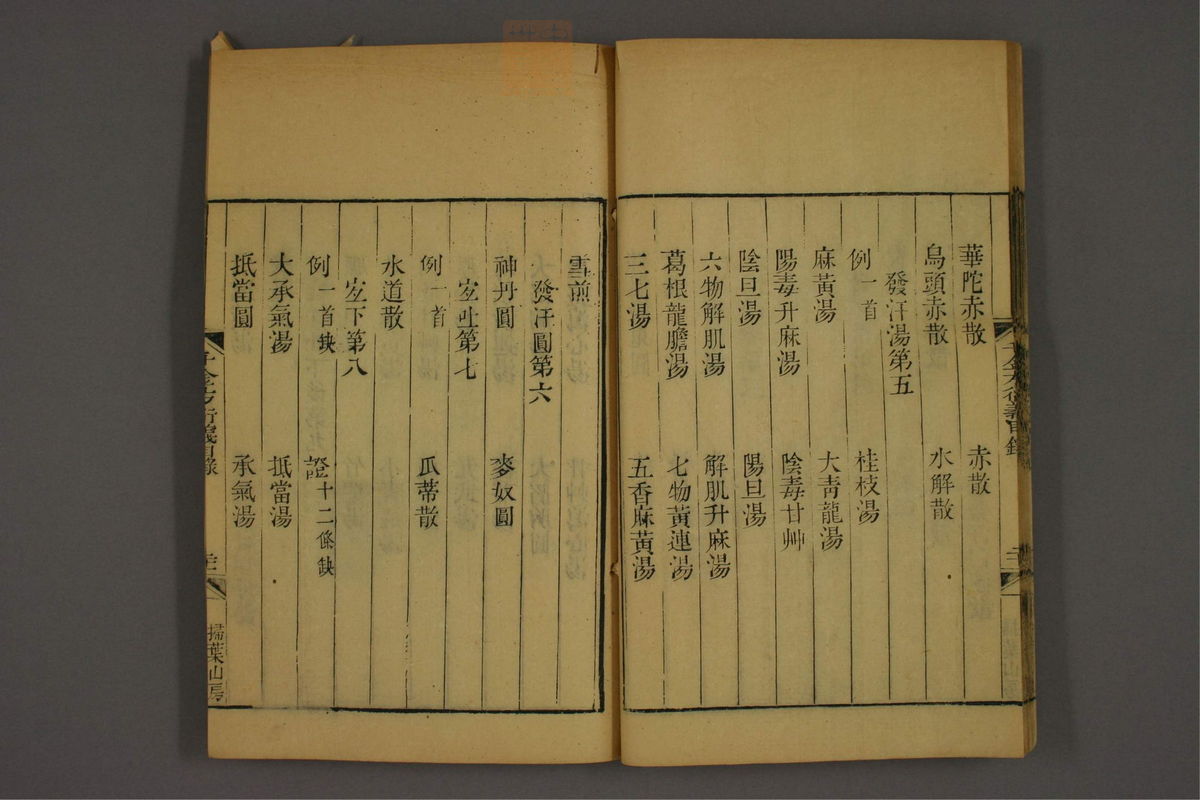 華陀赤散　赤散
烏頭赤散　水解散
發汗湯第五
例一首　桂枝湯
麻黃湯　大靑龍湯
陽毒升麻湯　陰毒甘艸
陰旦湯　陽旦湯
六物解肌湯　解肌升麻湯
葛根龍膽湯　七物黃連湯
三七湯　五香麻黃湯
雪煎
發汗圓第六
神丹圓　麥奴圓
宐吐第七
例一首　瓜蒂散
水道散
宐下第八
例一首缺　證十二條缺
大承氣湯　抵當湯
抵當圓　承氣湯
千金方衍義目錄
掃葉山房